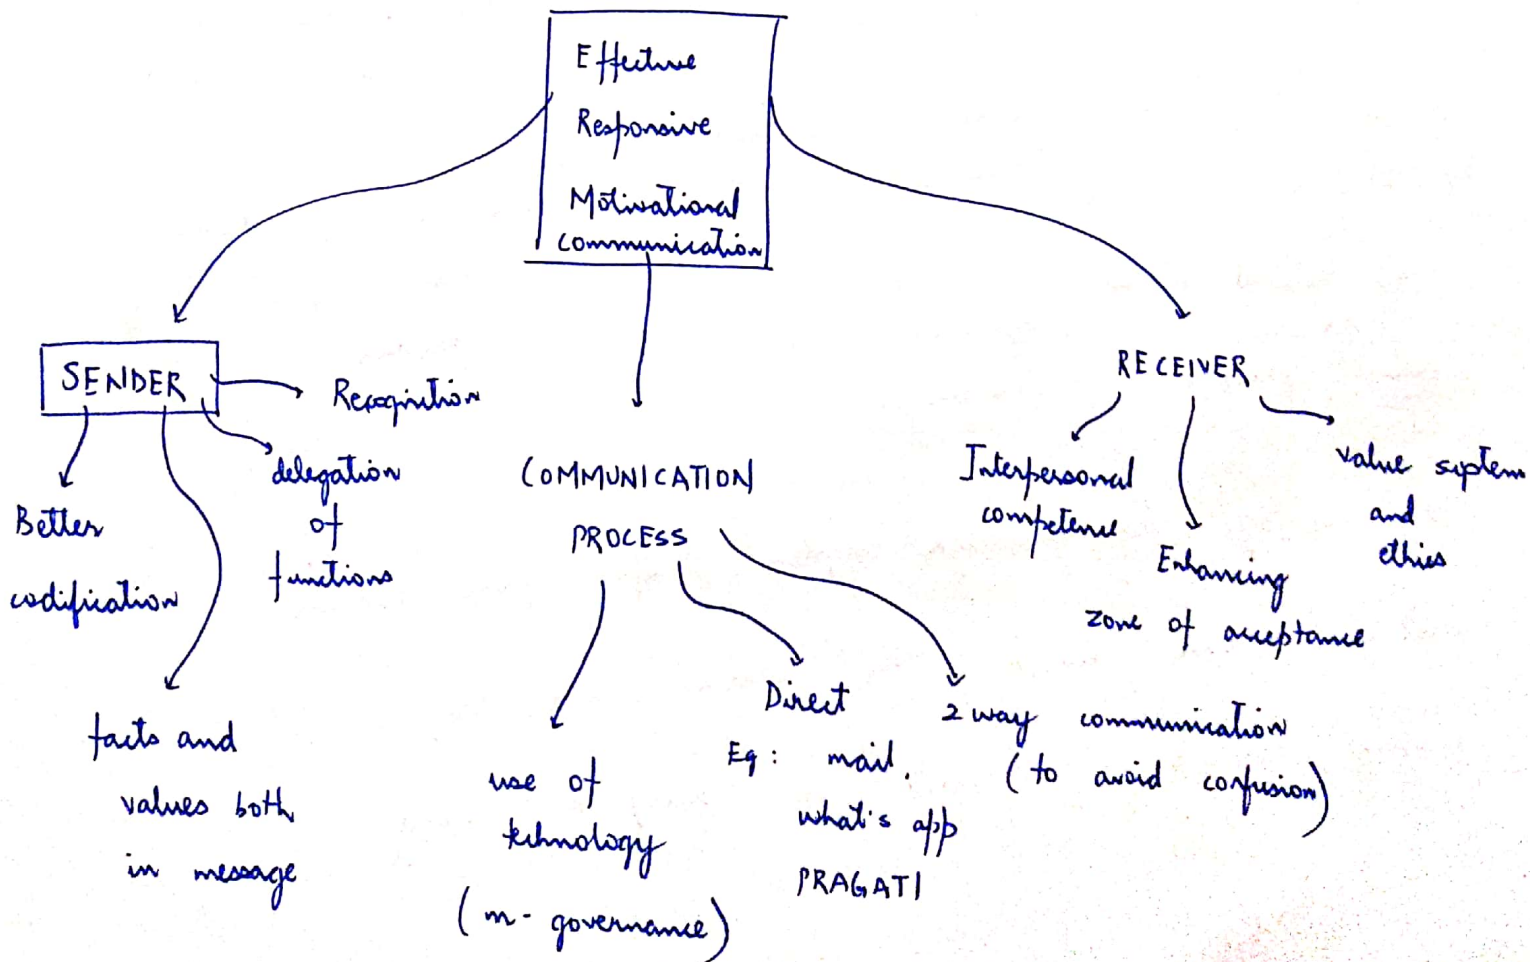 Effective
Responsive
Motivational
communication
SENDER
Recognition
delegation
of
functions
Better
codification
facts and
values both
in message
COMMUNICATION
PROCESS
use of
technology
(m-governance)
Direct
Eg: mail,
what's app
PRAGATI
2 way communication
(to avoid confusion)
RECEIVER
Interpersonal
competence
Enhancing
zone of acceptance
value system
and
ethics